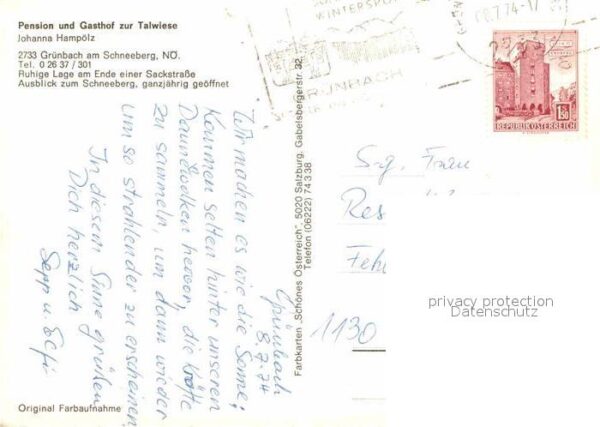 Pension und Gasthof zur Talwiese
Johanna Hampölz
2733 Grünbach am Schneeberg, NÖ.
Tel. 0 26 37 / 301
Ruhige Lage am Ende einer Sackstraße
Ausblick zum Schneeberg, ganzjährig geöffnet
WINTERSPORT
GRÜNBACH
8.7.74-17
1.50
REPUBLIK ÖSTERREICH
Grünbach
8.7.74
Wir machen es wie die Sonne;
Kommen selten hinter unseren
Daunenwolken hervor, die Kräfte
zu sammeln, um dann wieder
um so strahlender zu erscheinen
In diesem Sinne grüßen
Dich herzlich
Sepp u.
Farbkarten „Schönes Österreich", 5020 Salzburg, Gabelsbergerstr. 32,
Telefon (06222) 74 3 38
Sg. Frau
Res
Feh
1130
privacy protection
Datenschutz
Original Farbaufnahme